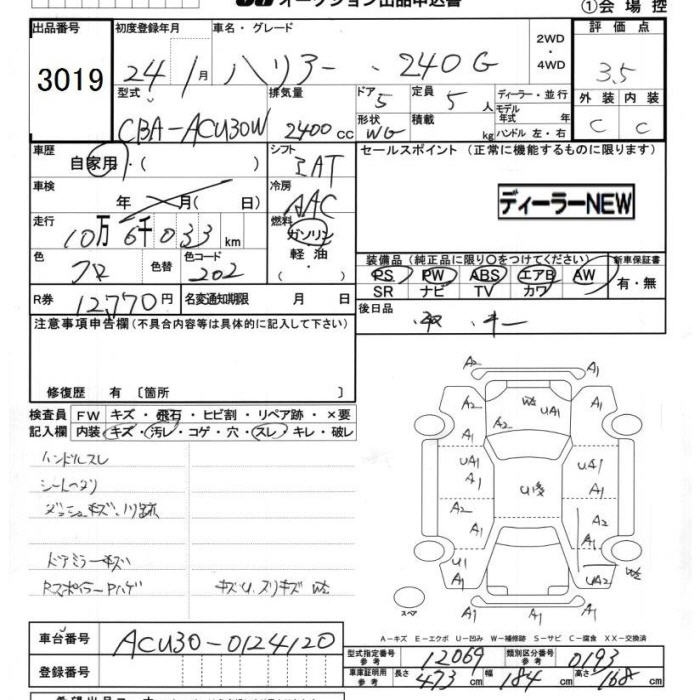 オークション出品申込書 ①会場控
出品番号 初度登録年月 車名・グレード 2WD・4WD 評価点
3019 24年1月 ハリアー 240G 3.5
型式 排気量 ドア 定員 ディーラー・並行 外装 内装
CBA-ACU30W 2400cc 5 5人 モデル年式 年 C C
形状 WG 積載 kg ハンドル 左・右
車歴 シフト セールスポイント (正常に機能するものに限ります)
自家用・( ) IAT
車検 冷房
年 月( 日) AAC ディーラーNEW
走行 燃料
10万6千033km ガソリン
色 色替 色コード 軽油 装備品 (純正品に限り○をつけてください) 新車保証書
クロ 202 ・( ) PS PW ABS エアB AW 有・無
R券 12,770円 名変通知期限 月 日 SR ナビ TV カワ
注意事項申告欄 (不具合内容等は具体的に記入して下さい) 後日品
取 キー
修復歴 有 〔箇所 〕
検査員 FW キズ・飛石・ヒビ割・リペア跡・×要
記入欄 内装 キズ・汚レ・コゲ・穴・スレ・キレ・破レ
ハンドルスレ
シートヨゴリ
ダッシュキズ、
ドアミラーキズ
RスポイラーPハゲ キズU、スリキズ
A2 A1
A2 A1
UA1
A2
UA1 UA1
A1 A1
A2 A2
A1 A1
U1 A1
A1 UA2
スペア
A-キズ E-エクボ U-凹み W-補修跡 S-サビ C-腐食 XX-交換済
車台番号 ACU30-0124120
型式指定番号 参考 12069 類別区分番号 参考 0193
登録番号 車庫証明用 参考 長さ 473cm 幅 184cm 高さ 168cm
希望出品コーナー